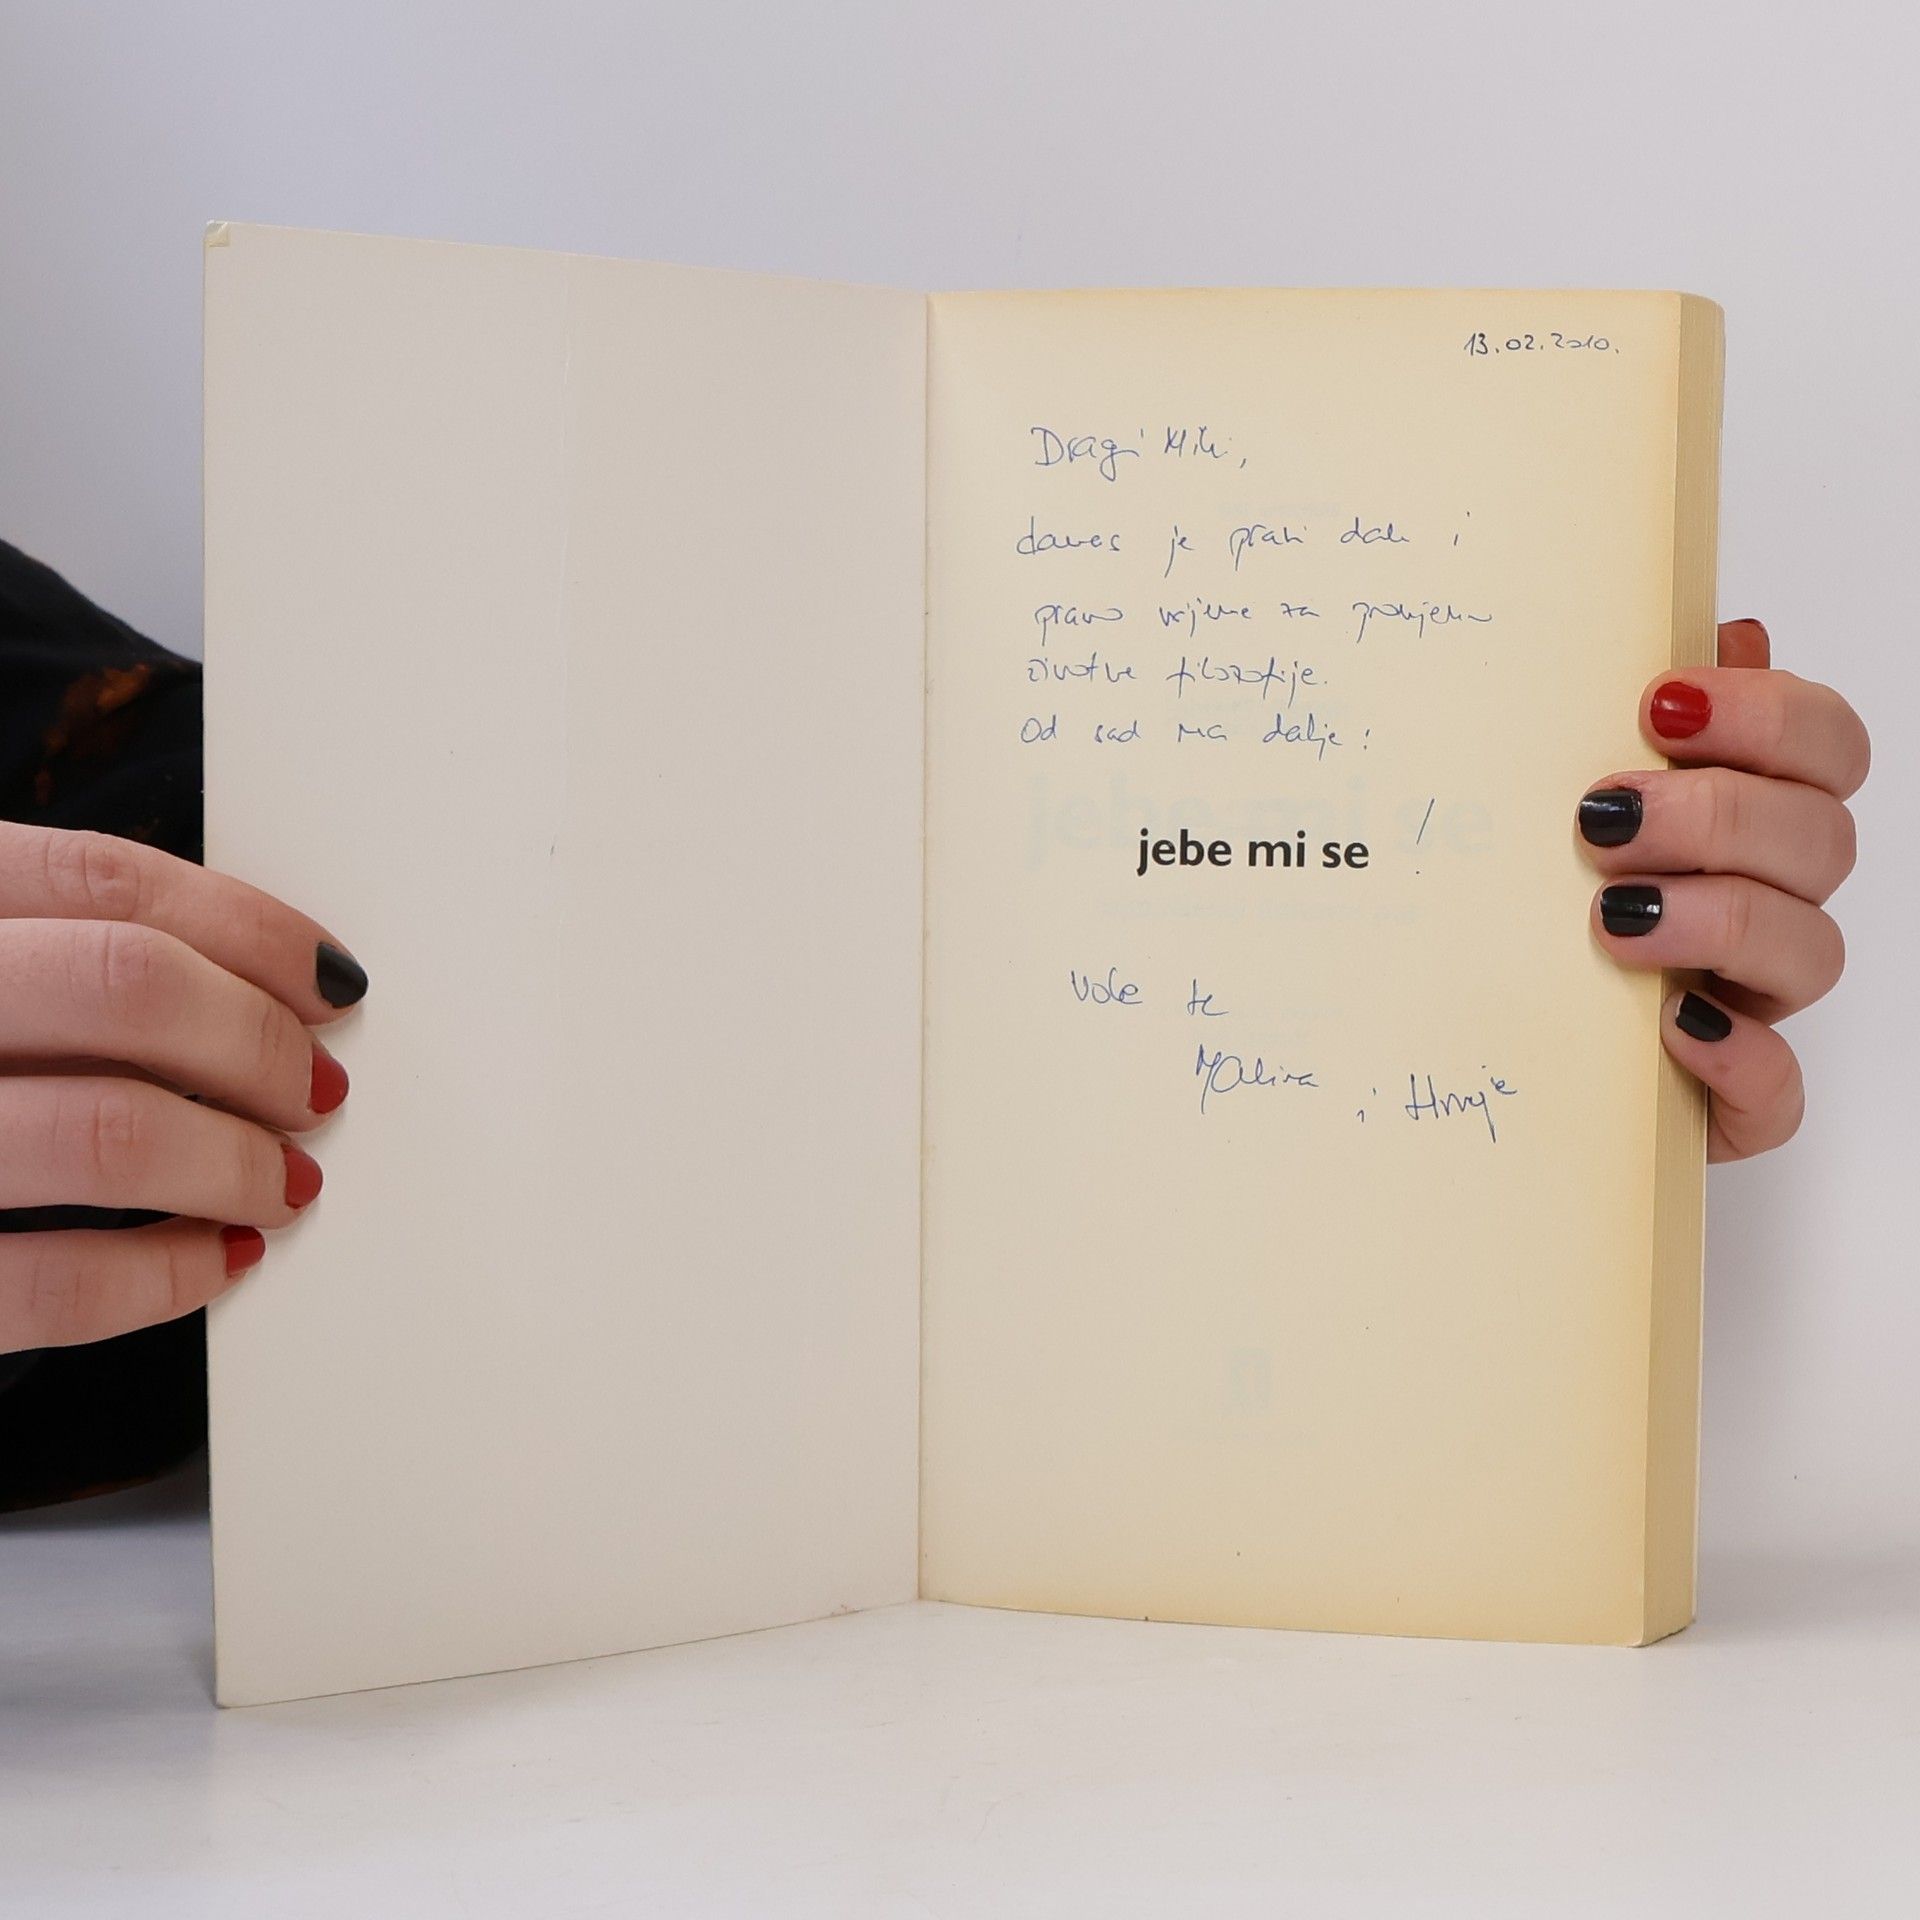 13.02.2010.
Dragi Miki,
danas je pravi dan i
pravo vrijeme za promjenu
životne filozofije.
Od sad na dalje:
jebe mi se !
Vole te
Malina i Hrvoje